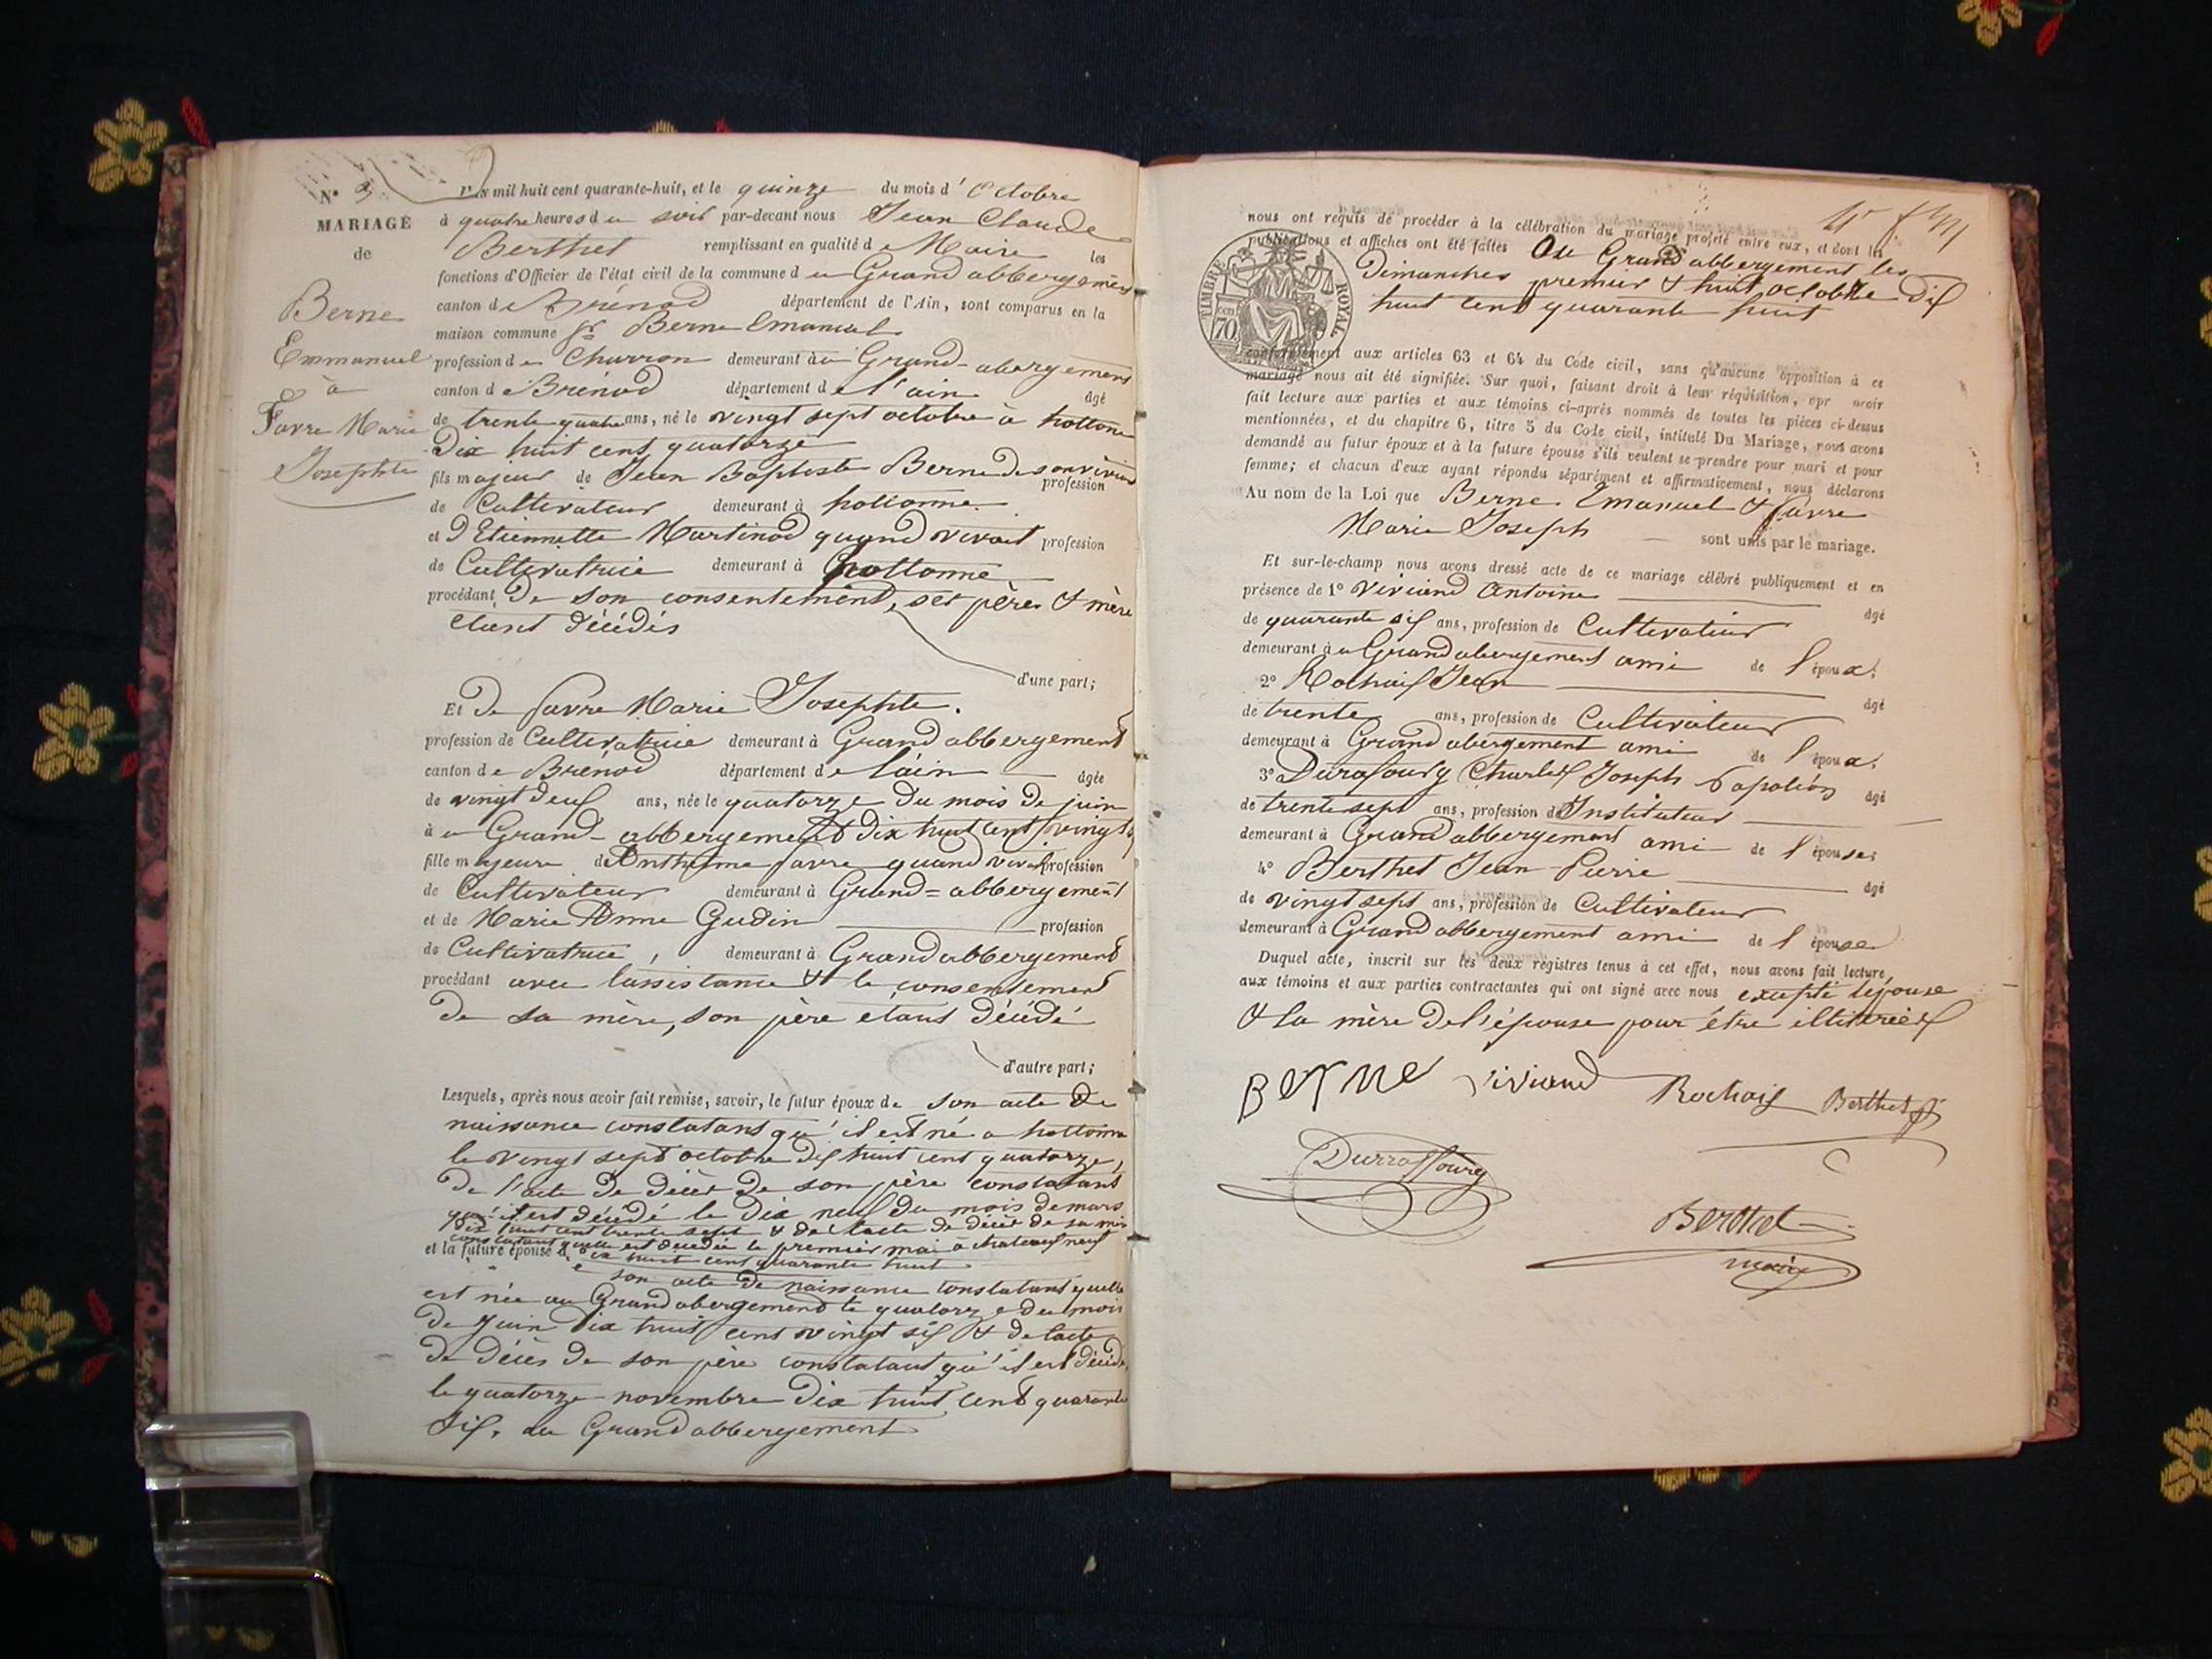 N° 3
MARIAGE
de
Berne
Emmanuel
à
Favre Marie
Josephte
mil huit cent quarante-huit, et le quinze du mois d'Octobre
à quatre heures du soir par-devant nous Jean Claude
Berthet remplissant en qualité de Maire les
fonctions d'Officier de l'état civil de la commune du Grand abbergement
canton de Brénod département de l'Ain, sont comparus en la
maison commune Berne Emanuel
profession de Charron demeurant au Grand-abergement
canton de Brénod département de l'ain âgé
de trente quatre ans, né le vingt sept octobre à hottone
Dix huit cent quatorze
fils majeur de Jean Baptiste Berne de son vivant profession
de Cultivateur demeurant à hottonne
et d'Etiennette Martinod quand vivait profession
de Cultivatrice demeurant à hottonne
procédant De son consentement, ses pères & mère
étant décédés
d'une part;
Et De favre Marie Josephte.
profession de Cultivatrice demeurant à Grand abbergement
canton de Brénod département de l'ain âgée
de vingt deux ans, née le quatorze Du mois De juin
au Grand-abbergement dix huit cent vingt
fille majeure d'Anthelme favre quand vivait profession
de Cultivateur demeurant à Grand=abbergement
et de Marie Anne Gudin profession
de Cultivatrice, demeurant à Grand abbergement
procédant avec l'assistance & le consentement
De sa mère, son père étant Décédé
d'autre part;
Lesquels, après nous avoir fait remise, savoir, le futur époux de son acte De
naissance constatant qu'il est né a hottonne
le vingt sept octobre dix huit cent quatorze,
De l'acte De décès De son père constatant
qu'il est décédé le Dix neuf du mois de mars
dix huit cent trente sept & de l'acte de décès de sa mère
constatant quelle est decedée le premier mai à chateauneuf
et la future épouse d dix huit cent quarante huit
son acte De naissance constatant quelle
est née au Grand abergement le quatorze du mois
De Juin Dix huit cent vingt six & de l'acte
De décès De son père constatant qu'il est décédé
le quatorze novembre Dix huit cent quarante
six. au Grand abbergement
nous ont requis de procéder à la célébration du mariage projeté entre eux, et dont les
publications et affiches ont été faites Au Grand abbergement les
Dimanches premier & huit octobre dix
huit cent quarante huit
TIMBRE ROYAL
70
conformément aux articles 63 et 64 du Code civil, sans qu'aucune opposition à ce
mariage nous ait été signifiée. Sur quoi, faisant droit à leur réquisition, apr avoir
fait lecture aux parties et aux témoins ci-après nommés de toutes les pièces ci-dessus
mentionnées, et du chapitre 6, titre 5 du Code civil, intitulé Du Mariage, nous avons
demandé au futur époux et à la future épouse s'ils veulent se prendre pour mari et pour
femme; et chacun d'eux ayant répondu séparément et affirmativement, nous déclarons
Au nom de la Loi que Berne Emanuel & favre
Marie Joseph sont unis par le mariage.
Et sur-le-champ nous avons dressé acte de ce mariage célébré publiquement et en
présence de 1° Viviand Antoine âgé
de quarante six ans, profession de Cultivateur
demeurant au Grand abergement ami de l'époux.
2° Rochaix Jean âgé
de trente ans, profession de Cultivateur
demeurant à Grand abergement ami de l'époux.
3° Durafourg Charles Joseph âgé
de trente sept ans, profession d'Instituteur
demeurant à Grand abbergement ami de l'épouse
4° Berthet Jean Pierre âgé
de vingt sept ans, profession de Cultivateur
demeurant à Grand abbergement ami de l'épouse
Duquel acte, inscrit sur les deux registres tenus à cet effet, nous avons fait lecture
aux témoins et aux parties contractantes qui ont signé avec nous excepté lépouse
& la mère De l'épouse pour être
Berne Viviand Rochaix Berthet
Durraffourg
Berthet
maire